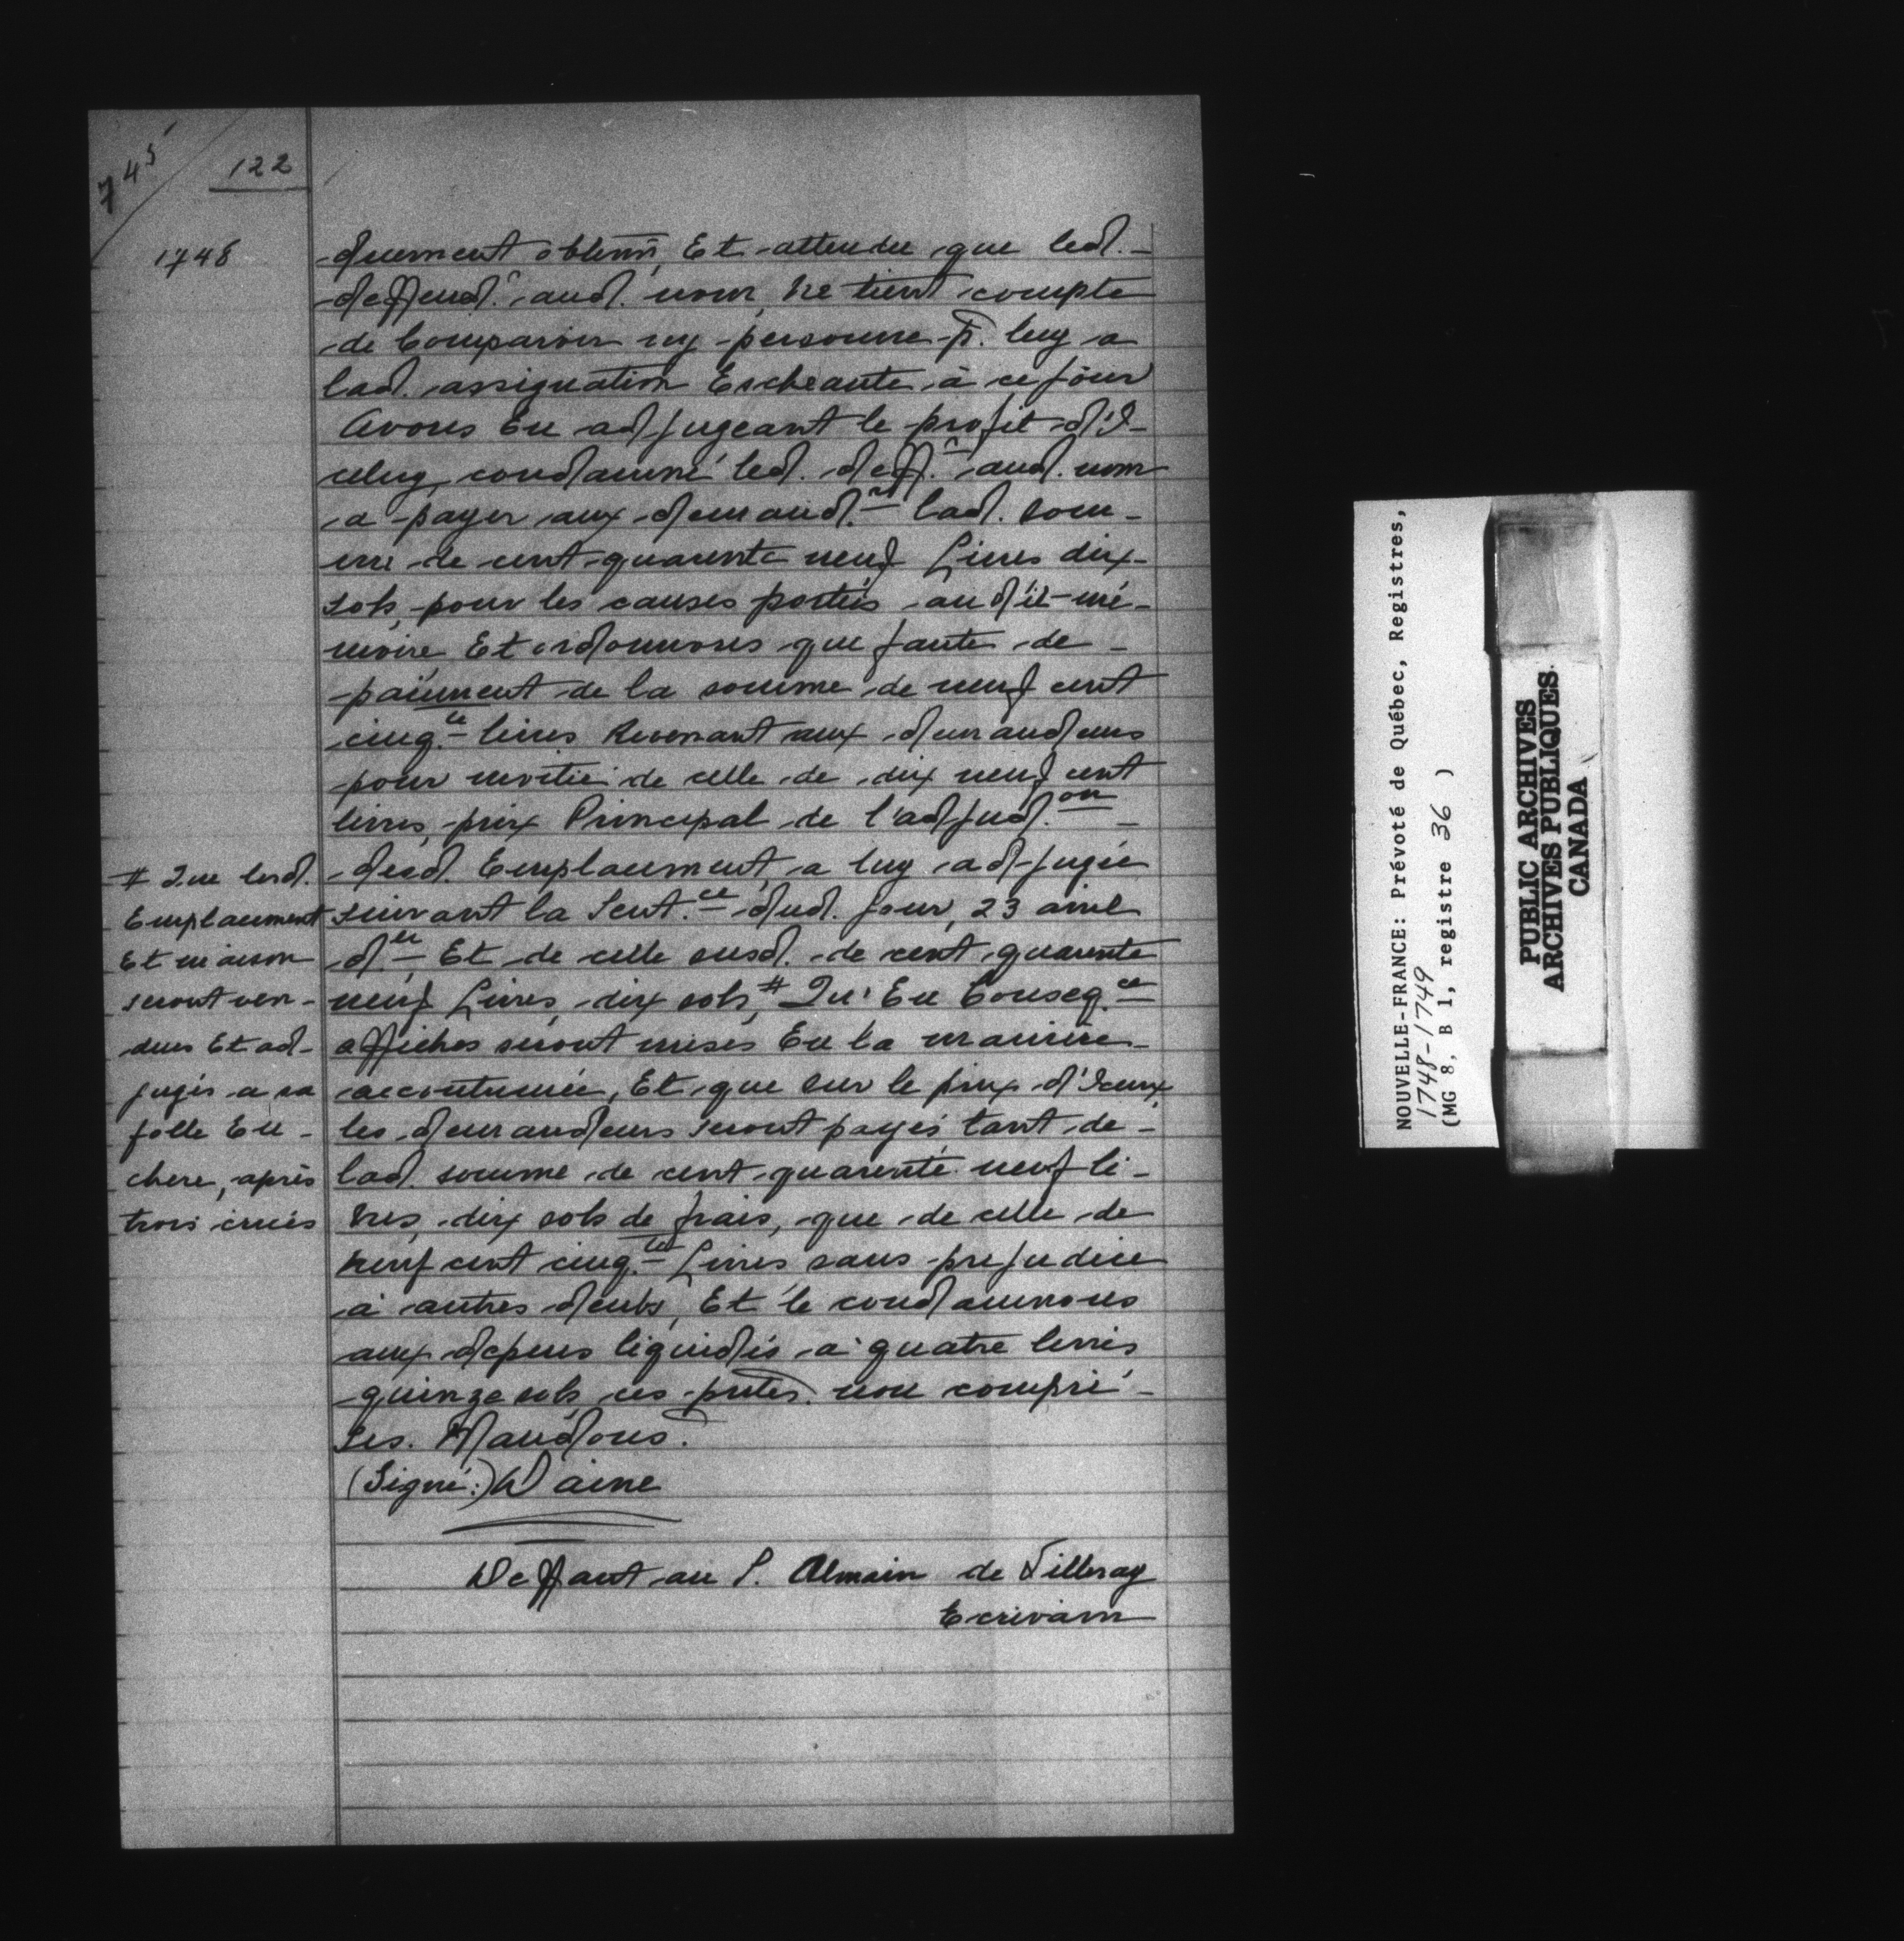 745
122
1748
duement obtenu, Et attendu que led.
deffend.r aud. nom, ne tient compte
de Comparoir ny personne p.r luy a
lad. assignation Escheante à ce jour
avons En adjugeant le profit d'I-
celuy, condamné led. deff.r aud. nom
a payer aux demand.rs lad. som-
me de cent quarente neuf Livres dix
sols, pour les causes portées audit mé-
moire Et ordonnons que faute de
paiement de la somme de neuf cent
cinq.te livres Revenant aux demandeurs
pour moitié de celle de dix neuf cent
livres, prix Principal de l'adjud.on
desd. Emplacement, a luy adjugée
suivant la Sent.ce dud. jour, 23 avril
d.er Et de celle susd. de cent quarente
neuf Livres, dix sols # Qu'En Conseq.ce
affiches seront mises En la manière
accoutumée, Et que sur le prix d'Iceux
les demandeurs seront payés tant de
lad. somme de cent quarente neuf li-
vres, dix sols de frais, que de celle de
neuf cent cinq.te Livres sans prejudice
à autres deubs, Et le condamnons
aux depens liquidés a quatre livres
quinze sols, ces pntes. non compri-
ses. Mandons.
(Signé:) Daine
Deffaut au S. Almain de Villeray
Ecrivain
# Que lesd.
Emplacement
Et maison
seront ven-
dues Et ad-
jugés a sa
folle En-
chere, après
trois criées
NOUVELLE-FRANCE: Prévoté de Québec, Registres,
1748-1749
(MG 8, B 1, registre 36 )
PUBLIC ARCHIVES
ARCHIVES PUBLIQUES
CANADA